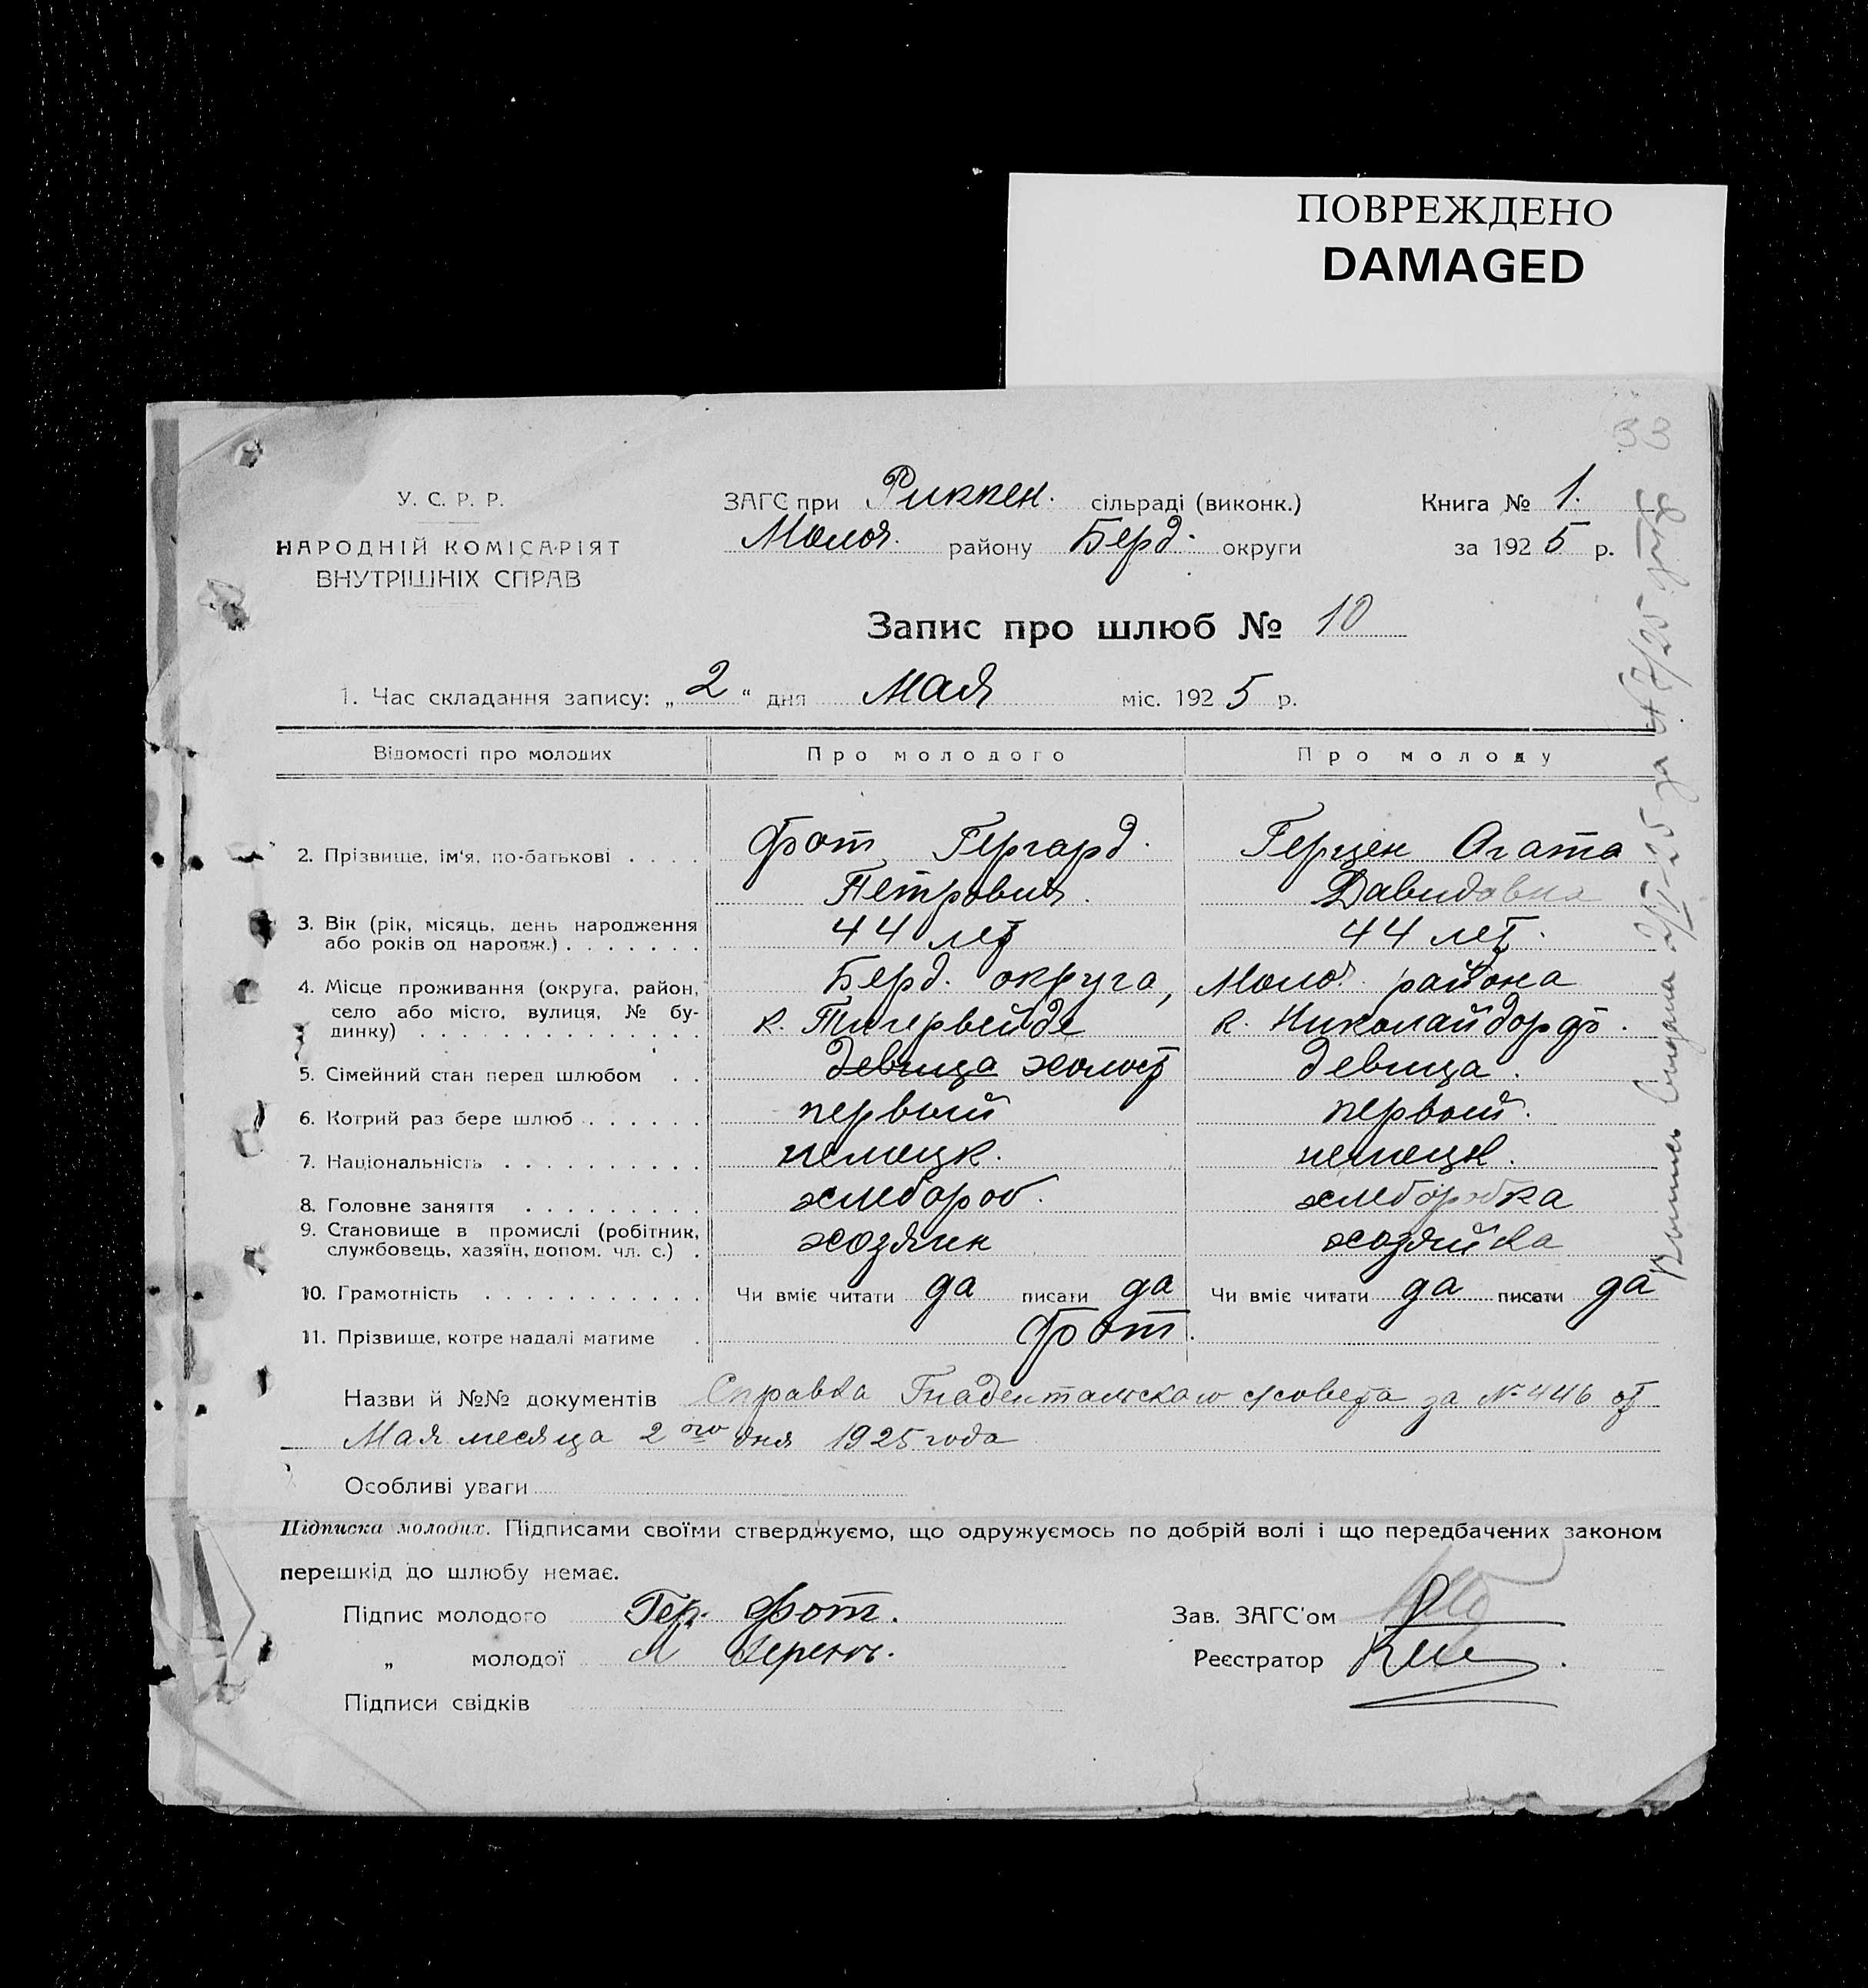 ПОВРЕЖДЕНО
DAMAGED
33
У. С. Р. Р.
НАРОДНІЙ КОМІСАРІЯТ
ВНУТРІШНІХ СПРАВ
ЗАГС при Риккен. сільраді (виконк.)
Молоч. району Берд. округи
Книга № 1.
за 1925 р.
Запис про шлюб № 10
1. Час складання запису: „2“ дня Мая міс. 1925 р.
Відомості про молодих Про молодого Про молоду
2. Прізвище, ім'я, по-батькові . . . . Фот Гергард. Герцен Агата
Петрович. Давидовна
3. Вік (рік, місяць, день народження
або років од народж.) . . . . . . . 44 лет 44 лет.
4. Місце проживання (округа, район, Берд. округа, Молоч. района
село або місто, вулиця, № бу-
динку) . . . . . . . . . . . . . . к. Тигервейде к. Николайдорфъ.
5. Сімейний стан перед шлюбом . . девица холост девица.
6. Котрий раз бере шлюб . . . . . . первый первый.
7. Національність . . . . . . . . . . немецк. немецк.
8. Головне заняття . . . . . . . . . хлебороб. хлеборобка
9. Становище в промислі (робітник,
службовець, хазяїн, допом. чл. с.) . хозяин хозяйка
10. Грамотність . . . . . . . . . . . Чи вміє читати да писати да Чи вміє читати да писати да
11. Прізвище, котре надалі матиме . Фот.
Назви й №№ документів Справка Гнадентальскаго с/совета за № 446 от
Мая месяца 2ого дня 1925 года
Особливі уваги
Підписка молодих. Підписами своїми стверджуємо, що одружуємось по добрій волі і що передбачених законом
перешкід до шлюбу немає.
Підпис молодого Гер. Фот.
„ молодої А
Зав. ЗАГС'ом
Реєстратор
Підписи свідків